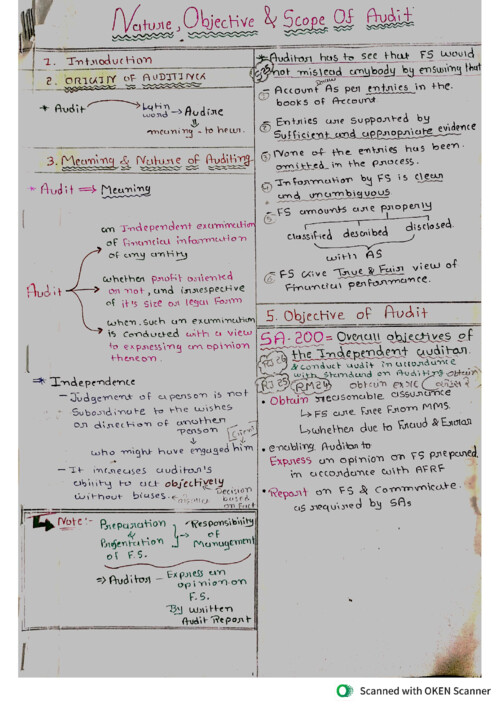 Nature, Objective & Scope Of Audit
1. Introduction
2. ORIGIN OF AUDITING
* Audit → Latin word → Audire
meaning - to hear.
3. Meaning & Nature of Auditing.
- Audit ⇒ Meaning
Audit
an Independent examination
of financial information
of any entity
whether profit oriented
or not, and irrespective
of it's size or legal form
when such an examination
is conducted with a view
to expressing an opinion
thereon.
* Independence
- Judgement of a person is not
Subordinate to the wishes
or direction of another
person
who might have engaged him
- It increases auditor's
ability to act objectively
without biases.
Decision
based
on Fact
Note:- Preparation
&
Presentation
of F.S.
Responsibility
of
Management
⇒ Auditor - Express an
opinion on
F.S.
By written
Audit Report
* Auditor has to see that FS would
not mislead anybody by ensuring that
① Account As per entries in the
books of Account
② Entries are supported by
Sufficient and appropriate evidence
③ None of the entries has been
omitted in the process.
④ Information by FS is clear
and unambiguous
⑤ FS amounts are properly
classified described disclosed.
with AS
⑥ FS give True & Fair view of
Financial performance.
5. Objective of Audit
SA-200 = Overall objectives of
the Independent auditor
& conduct audit in accordance
with standard on Auditing
• Obtain reasonable assurance
↳ FS are free from MMS
↳ whether due to Fraud & Error
• enabling Auditor to
Express an opinion on FS prepared
in accordance with AFRF
• Report on FS & Communicate
as required by SAs
Scanned with OKEN Scanner